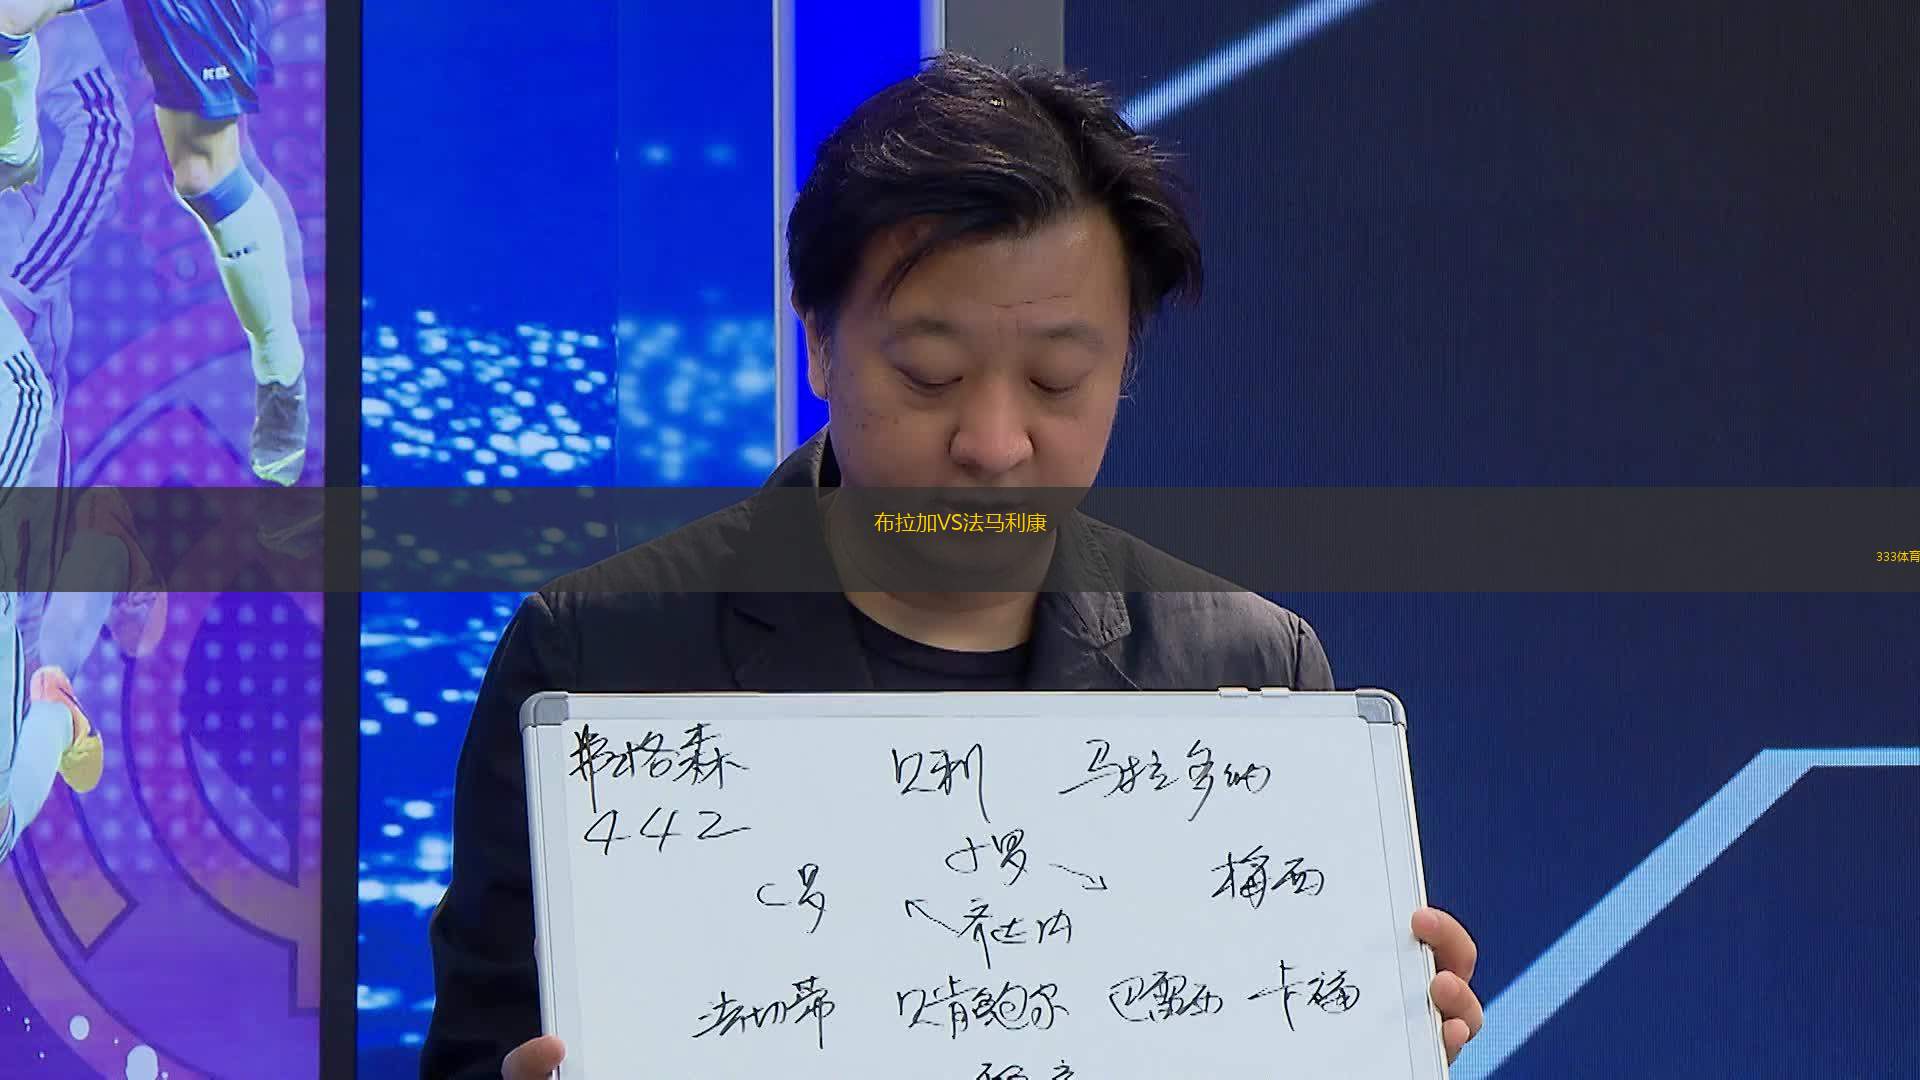 KEL
布拉加VS法马利康
333体育
弗格森 贝利 马拉多纳
442
大罗
C罗 梅西
齐达内
法切蒂 贝肯鲍尔 巴雷西 卡福